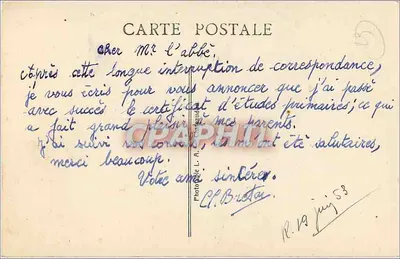 CARTE POSTALE
Cher Mr l'abbé,
Après cette longue interruption de correspondance,
je vous écris pour vous annoncer que j'ai passé
avec succès le certificat d'études primaires, ce qui
a fait grand plaisir à mes parents.
J'ai suivi vos conseils, ils m'ont été salutaires,
merci beaucoup.
Votre ami sincère,
R. 19 juin 53
CPARAMA